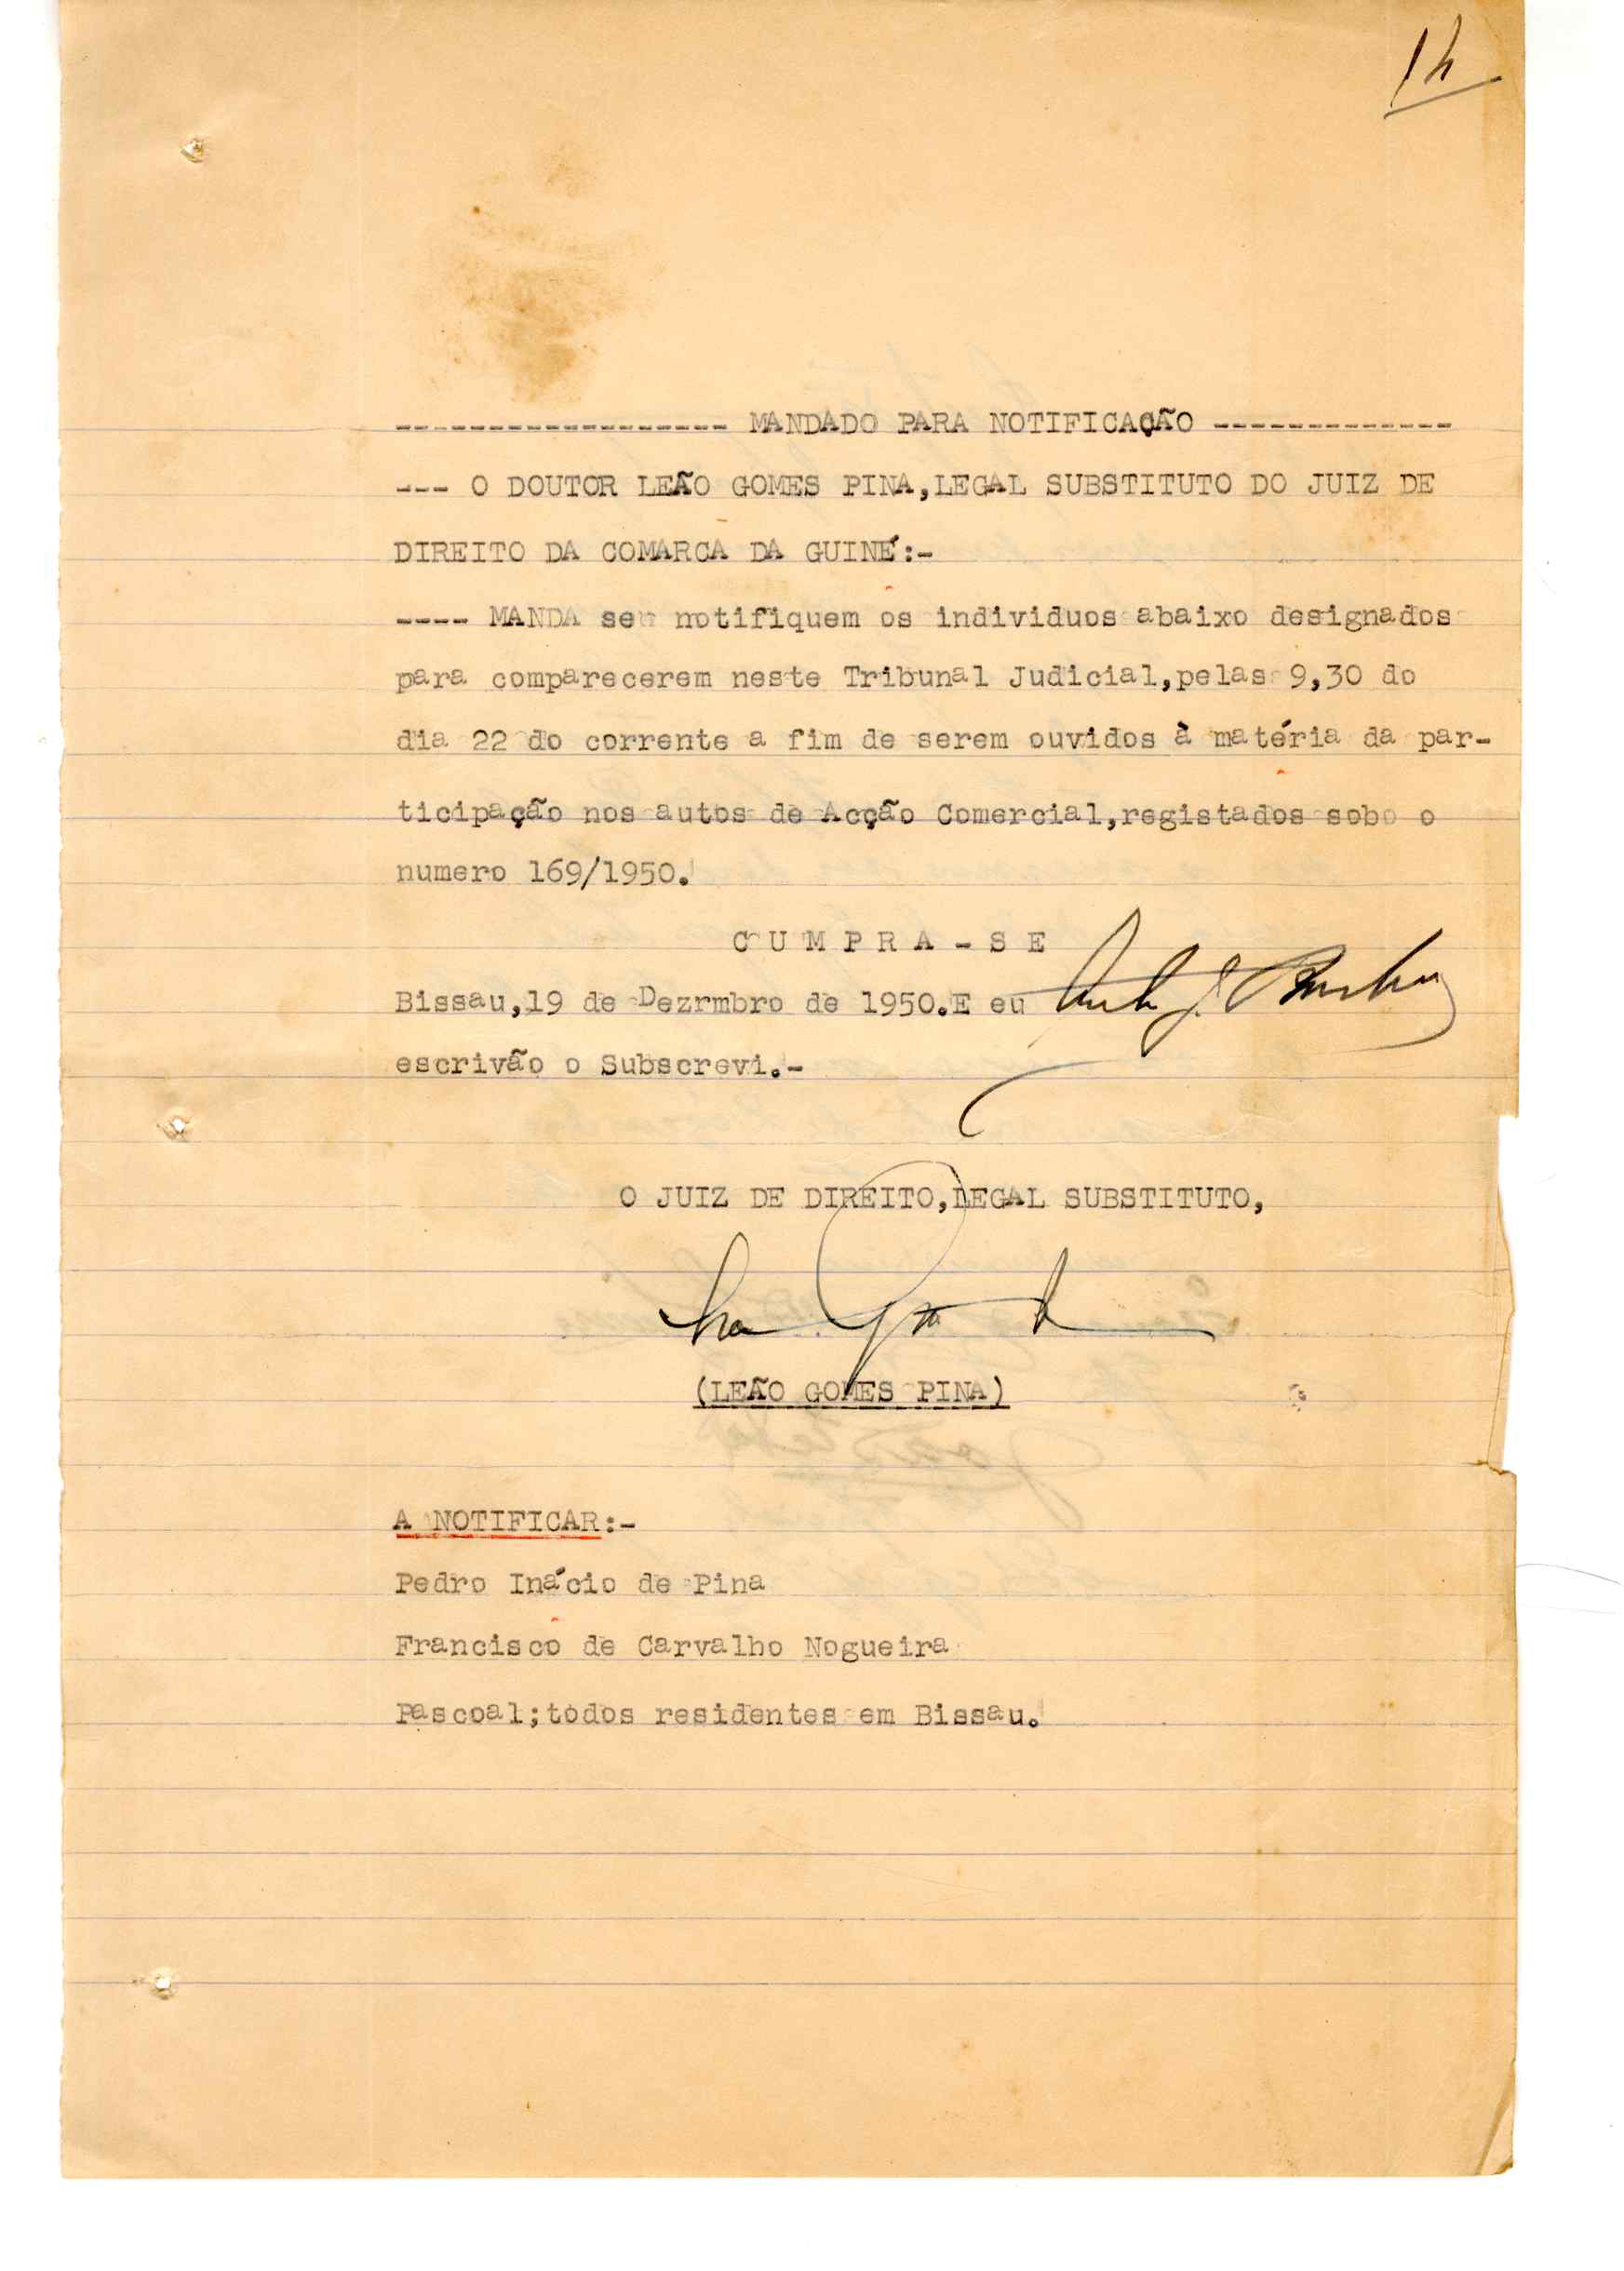 14
------------------ MANDADO PARA NOTIFICAÇÃO -------------
--- O DOUTOR LEÃO GOMES PINA,LEGAL SUBSTITUTO DO JUIZ DE
DIREITO DA COMARCA DA GUINÉ:-
---- MANDA se notifiquem os individuos abaixo designados
para comparecerem neste Tribunal Judicial,pelas 9,30 do
dia 22 do corrente a fim de serem ouvidos à matéria da par-
ticipação nos autos de Acção Comercial,registados sobo o
numero 169/1950.
C U M P R A - S E
Bissau,19 de Dezrmbro de 1950.E eu
escrivão o Subscrevi.-
O JUIZ DE DIREITO,LEGAL SUBSTITUTO,
(LEÃO GOMES PINA)
A NOTIFICAR:-
Pedro Inácio de Pina
Francisco de Carvalho Nogueira
Pascoal;todos residentes em Bissau.